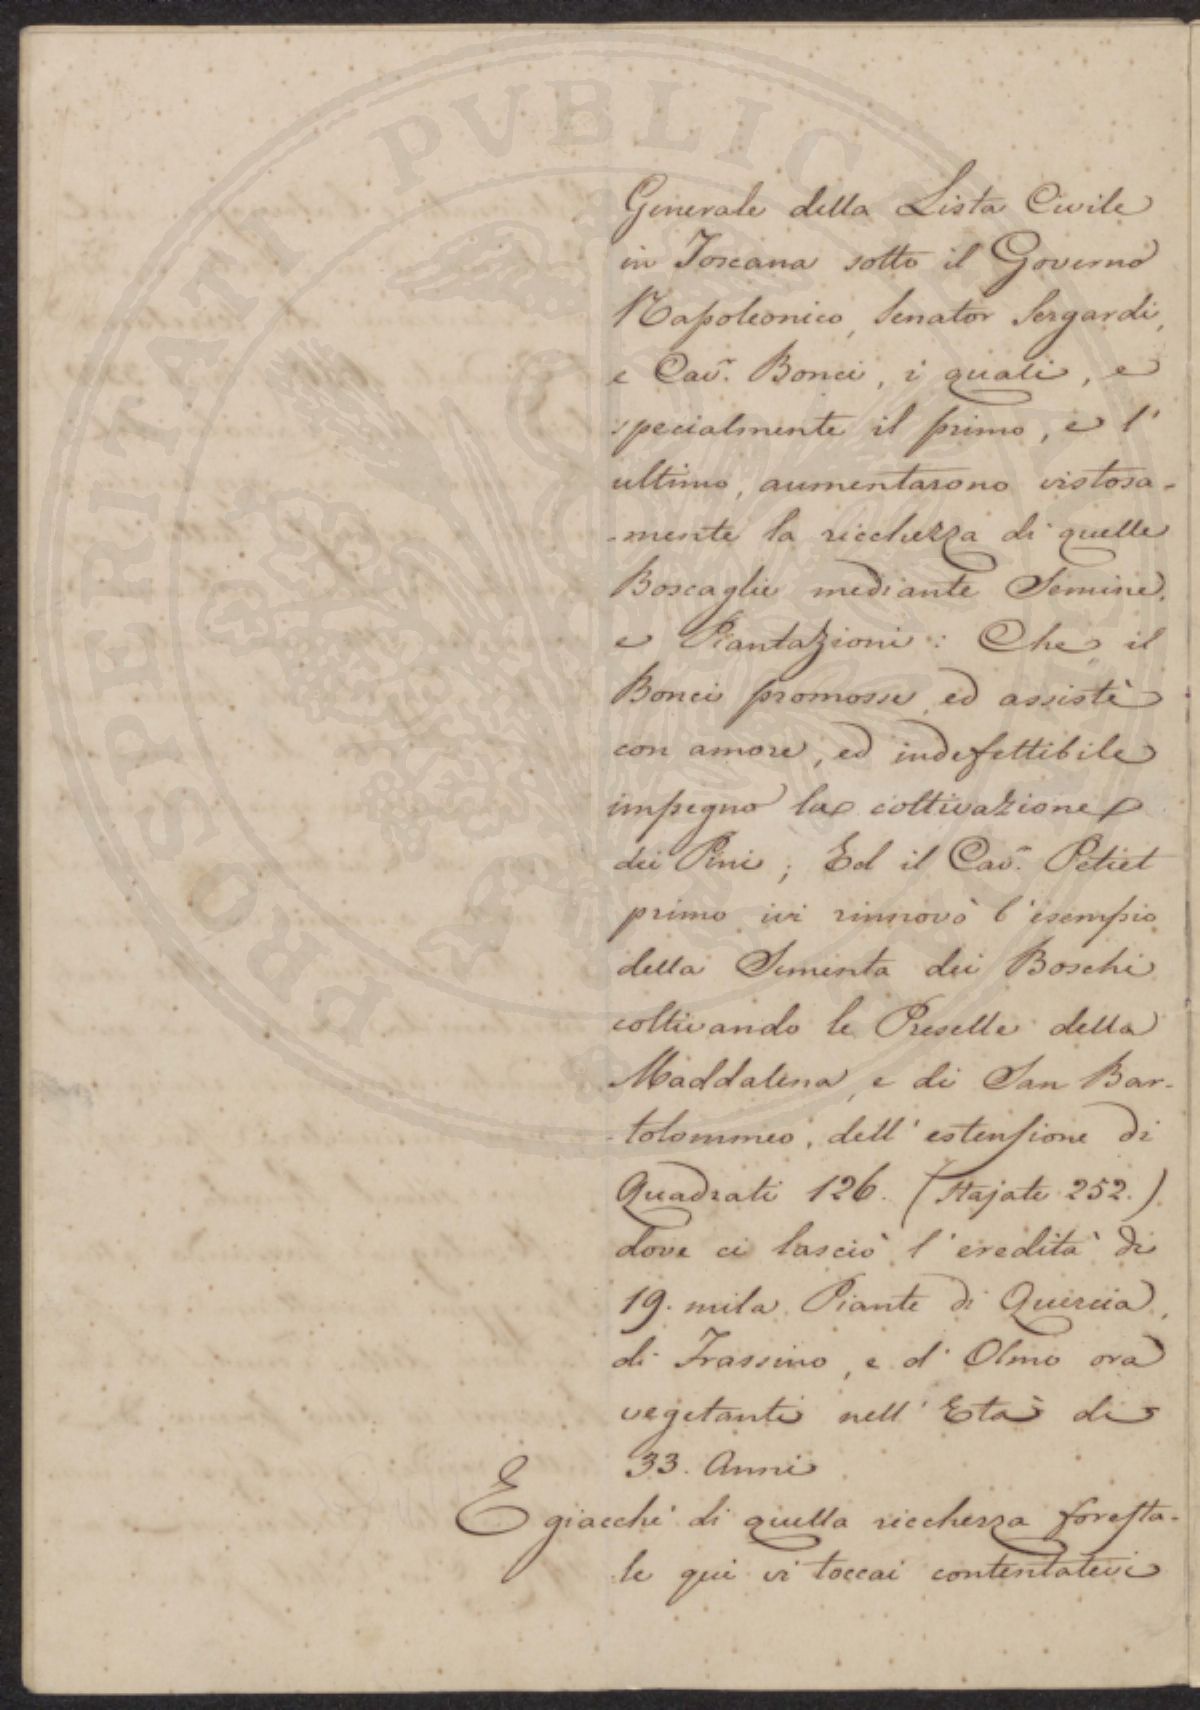 Generale della Lista Civile
in Toscana sotto il Governo
Napoleonico, Senator Sergardi,
e Cav.r Bonci, i quali, e
specialmente il primo, e l'
ultimo, aumentarono vistosa-
-mente la ricchezza di quelle
Boscaglie mediante Semine,
e Piantazioni: Che il
Bonci promosse, ed assistè
con amore, ed indefettibile
impegno la coltivazione
dei Pini; Ed il Cav.r Petiet
primo ivi rinnovò l'esempio
della Sementa dei Boschi
coltivando le Preselle della
Maddalena, e di San Bar-
-tolommeo, dell'estensione di
Quadrati 126. (Stajate 252.)
dove ci lasciò l'eredità di
19. mila Piante di Quercia,
di Frassino, e d'Olmo ora
vegetanti nell'Età di
33. Anni
E giacchè di quella ricchezza foresta-
le qui vi toccai contentatevi
PROSPERITATI PVBLICAE